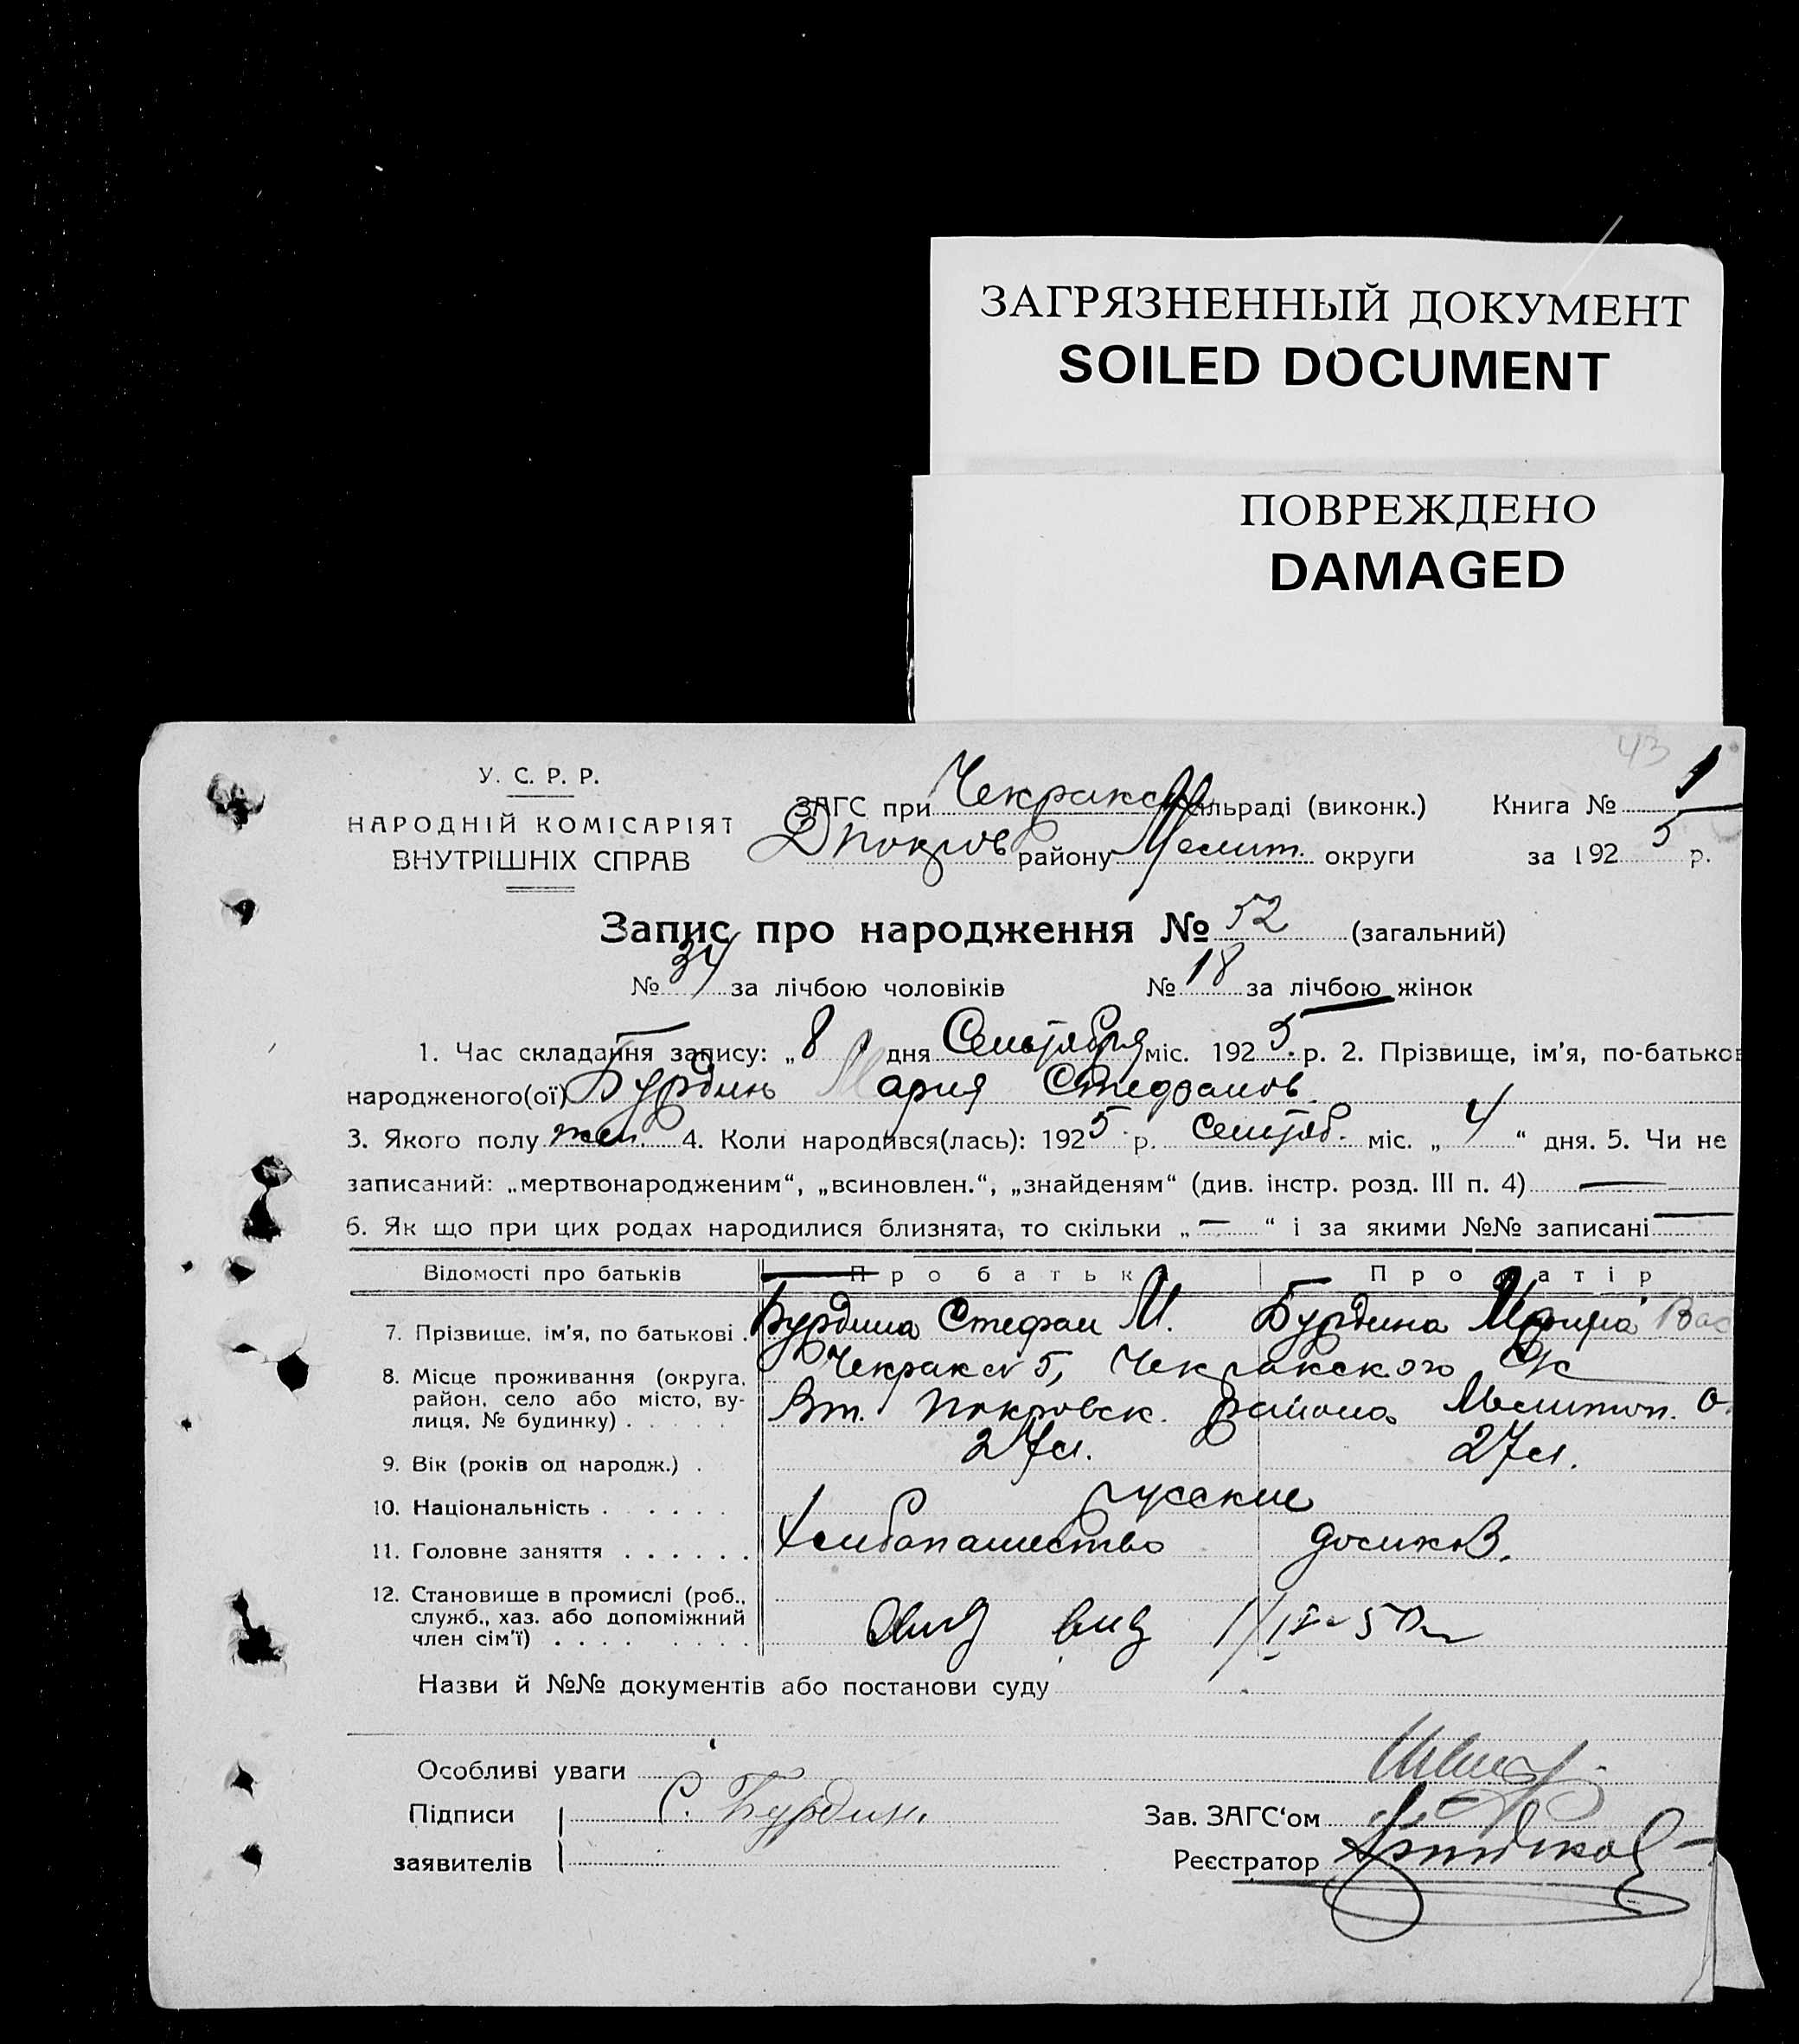 ЗАГРЯЗНЕННЫЙ ДОКУМЕНТ
SOILED DOCUMENT
ПОВРЕЖДЕНО
DAMAGED
43
У. С. Р. Р.
НАРОДНІЙ КОМІСАРІЯТ
ВНУТРІШНІХ СПРАВ
ЗАГС при Чекракск сільраді (виконк.) Книга № 1
району Мелит. округи за 1925 р.
Запис про народження № 52 (загальний)
№ 34 за лічбою чоловіків № 18 за лічбою жінок
1. Час складання запису: „8 дня Сентября міс. 1925 р. 2. Прізвище, ім'я, по-батьков
народженого(ої) Бурдин Мария Стефанов.
3. Якого полу жен. 4. Коли народився(лась): 1925 р. Сентяб. міс. „ 4 “ дня. 5. Чи не
записаний: „мертвонародженим“, „всиновлен.“, „знайденям“ (див. інстр. розд. III п. 4) —
6. Як що при цих родах народилися близнята, то скільки „ — “ і за якими №№ записані —
Відомості про батьків Про батька Про матір
7. Прізвище, ім'я, по батькові . Бурдина Стефан М. Бурдина Мария Вас
8. Місце проживання (округа, Чекрак № 5, Чекракского С/с
район, село або місто, ву-
лиця, № будинку) . . . . . Вт. Покровск. района Мелитоп. О.
9. Вік (років од народж.) . 27 л. 27 л.
10. Національність . . . . . . русские
11. Головне заняття . . . . . . Хлебопашество домохоз.
12. Становище в промислі (роб.,
служб., хаз. або допоміжний
член сім'ї) . . . . . . . .
Назви й №№ документів або постанови суду
Особливі уваги
Підписи С. Бурдин. Зав. ЗАГС‘ом
заявителів Реєстратор